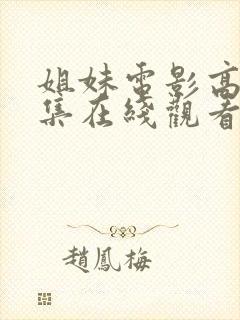 姐妹電影高
集在綫觀看
趙鳳梅